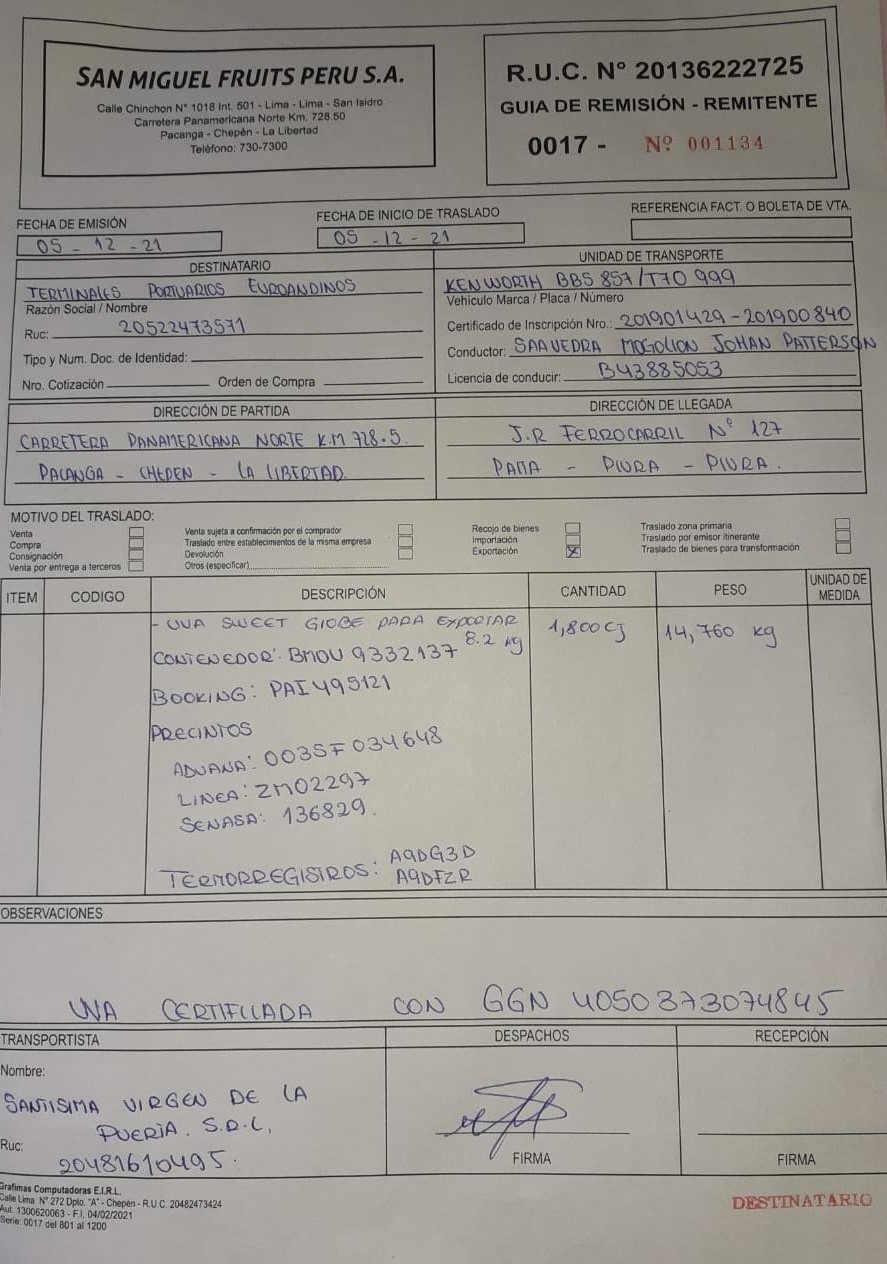 SAN MIGUEL FRUITS PERU S.A.
Calle Chinchon N° 1018 Int. 501 - Lima - Lima - San Isidro
Carretera Panamericana Norte Km. 728.50
Pacanga - Chepén - La Libertad
Teléfono: 730-7300
R.U.C. N° 20136222725
GUIA DE REMISIÓN - REMITENTE
0017 - Nº 001134
FECHA DE EMISIÓN
05 - 12 - 21
FECHA DE INICIO DE TRASLADO
05 - 12 - 21
REFERENCIA FACT. O BOLETA DE VTA.
DESTINATARIO
TERMINALES PORTUARIOS EUROANDINOS
Razón Social / Nombre
Ruc: 20522473571
Tipo y Num. Doc. de Identidad:
Nro. Cotización Orden de Compra
UNIDAD DE TRANSPORTE
KENWORTH BBS 857/T70 999
Vehículo Marca / Placa / Número
Certificado de Inscripción Nro.: 201901429-201900840
Conductor: SAAVEDRA MOGOLLON JOHAN PATTERSON
Licencia de conducir: B43885053
DIRECCIÓN DE PARTIDA
CARRETERA PANAMERICANA NORTE K.M 728.5
PACANGA - CHEPEN - LA LIBERTAD.
DIRECCIÓN DE LLEGADA
J.R FERROCARRIL N° 127
PAITA - PIURA - PIURA.
MOTIVO DEL TRASLADO:
Venta
Compra
Consignación
Venta por entrega a terceros
Venta sujeta a confirmación por el comprador
Traslado entre establecimientos de la misma empresa
Devolución
Otros (especificar)
Recojo de bienes
Importación
Exportación X
Traslado zona primaria
Traslado por emisor itinerante
Traslado de bienes para transformación
ITEM CODIGO DESCRIPCIÓN CANTIDAD PESO UNIDAD DE MEDIDA
- UVA SWEET GLOBE PARA EXPORTAR 1,800 CJ 14,760 kg
8.2 kg
CONTENEDOR: BMOU 9332137
BOOKING: PAI495121
PRECINTOS
ADUANA: 0035F034648
LINEA: ZM02297
SENASA: 136829.
TERMORREGISTROS: A9DG3D
A9DFZR
OBSERVACIONES
UVA CERTIFICADA CON GGN 4050373074845
TRANSPORTISTA
Nombre:
SANTISIMA VIRGEN DE LA
PUERTA. S.R.L.
Ruc:
20481610495.
DESPACHOS
FIRMA
RECEPCIÓN
FIRMA
Grafimas Computadoras E.I.R.L.
Calle Lima N° 272 Dpto. "A" - Chepén - R.U.C. 20482473424
Aut. 1300620063 - F.I. 04/02/2021
Serie: 0017 del 801 al 1200
DESTINATARIO